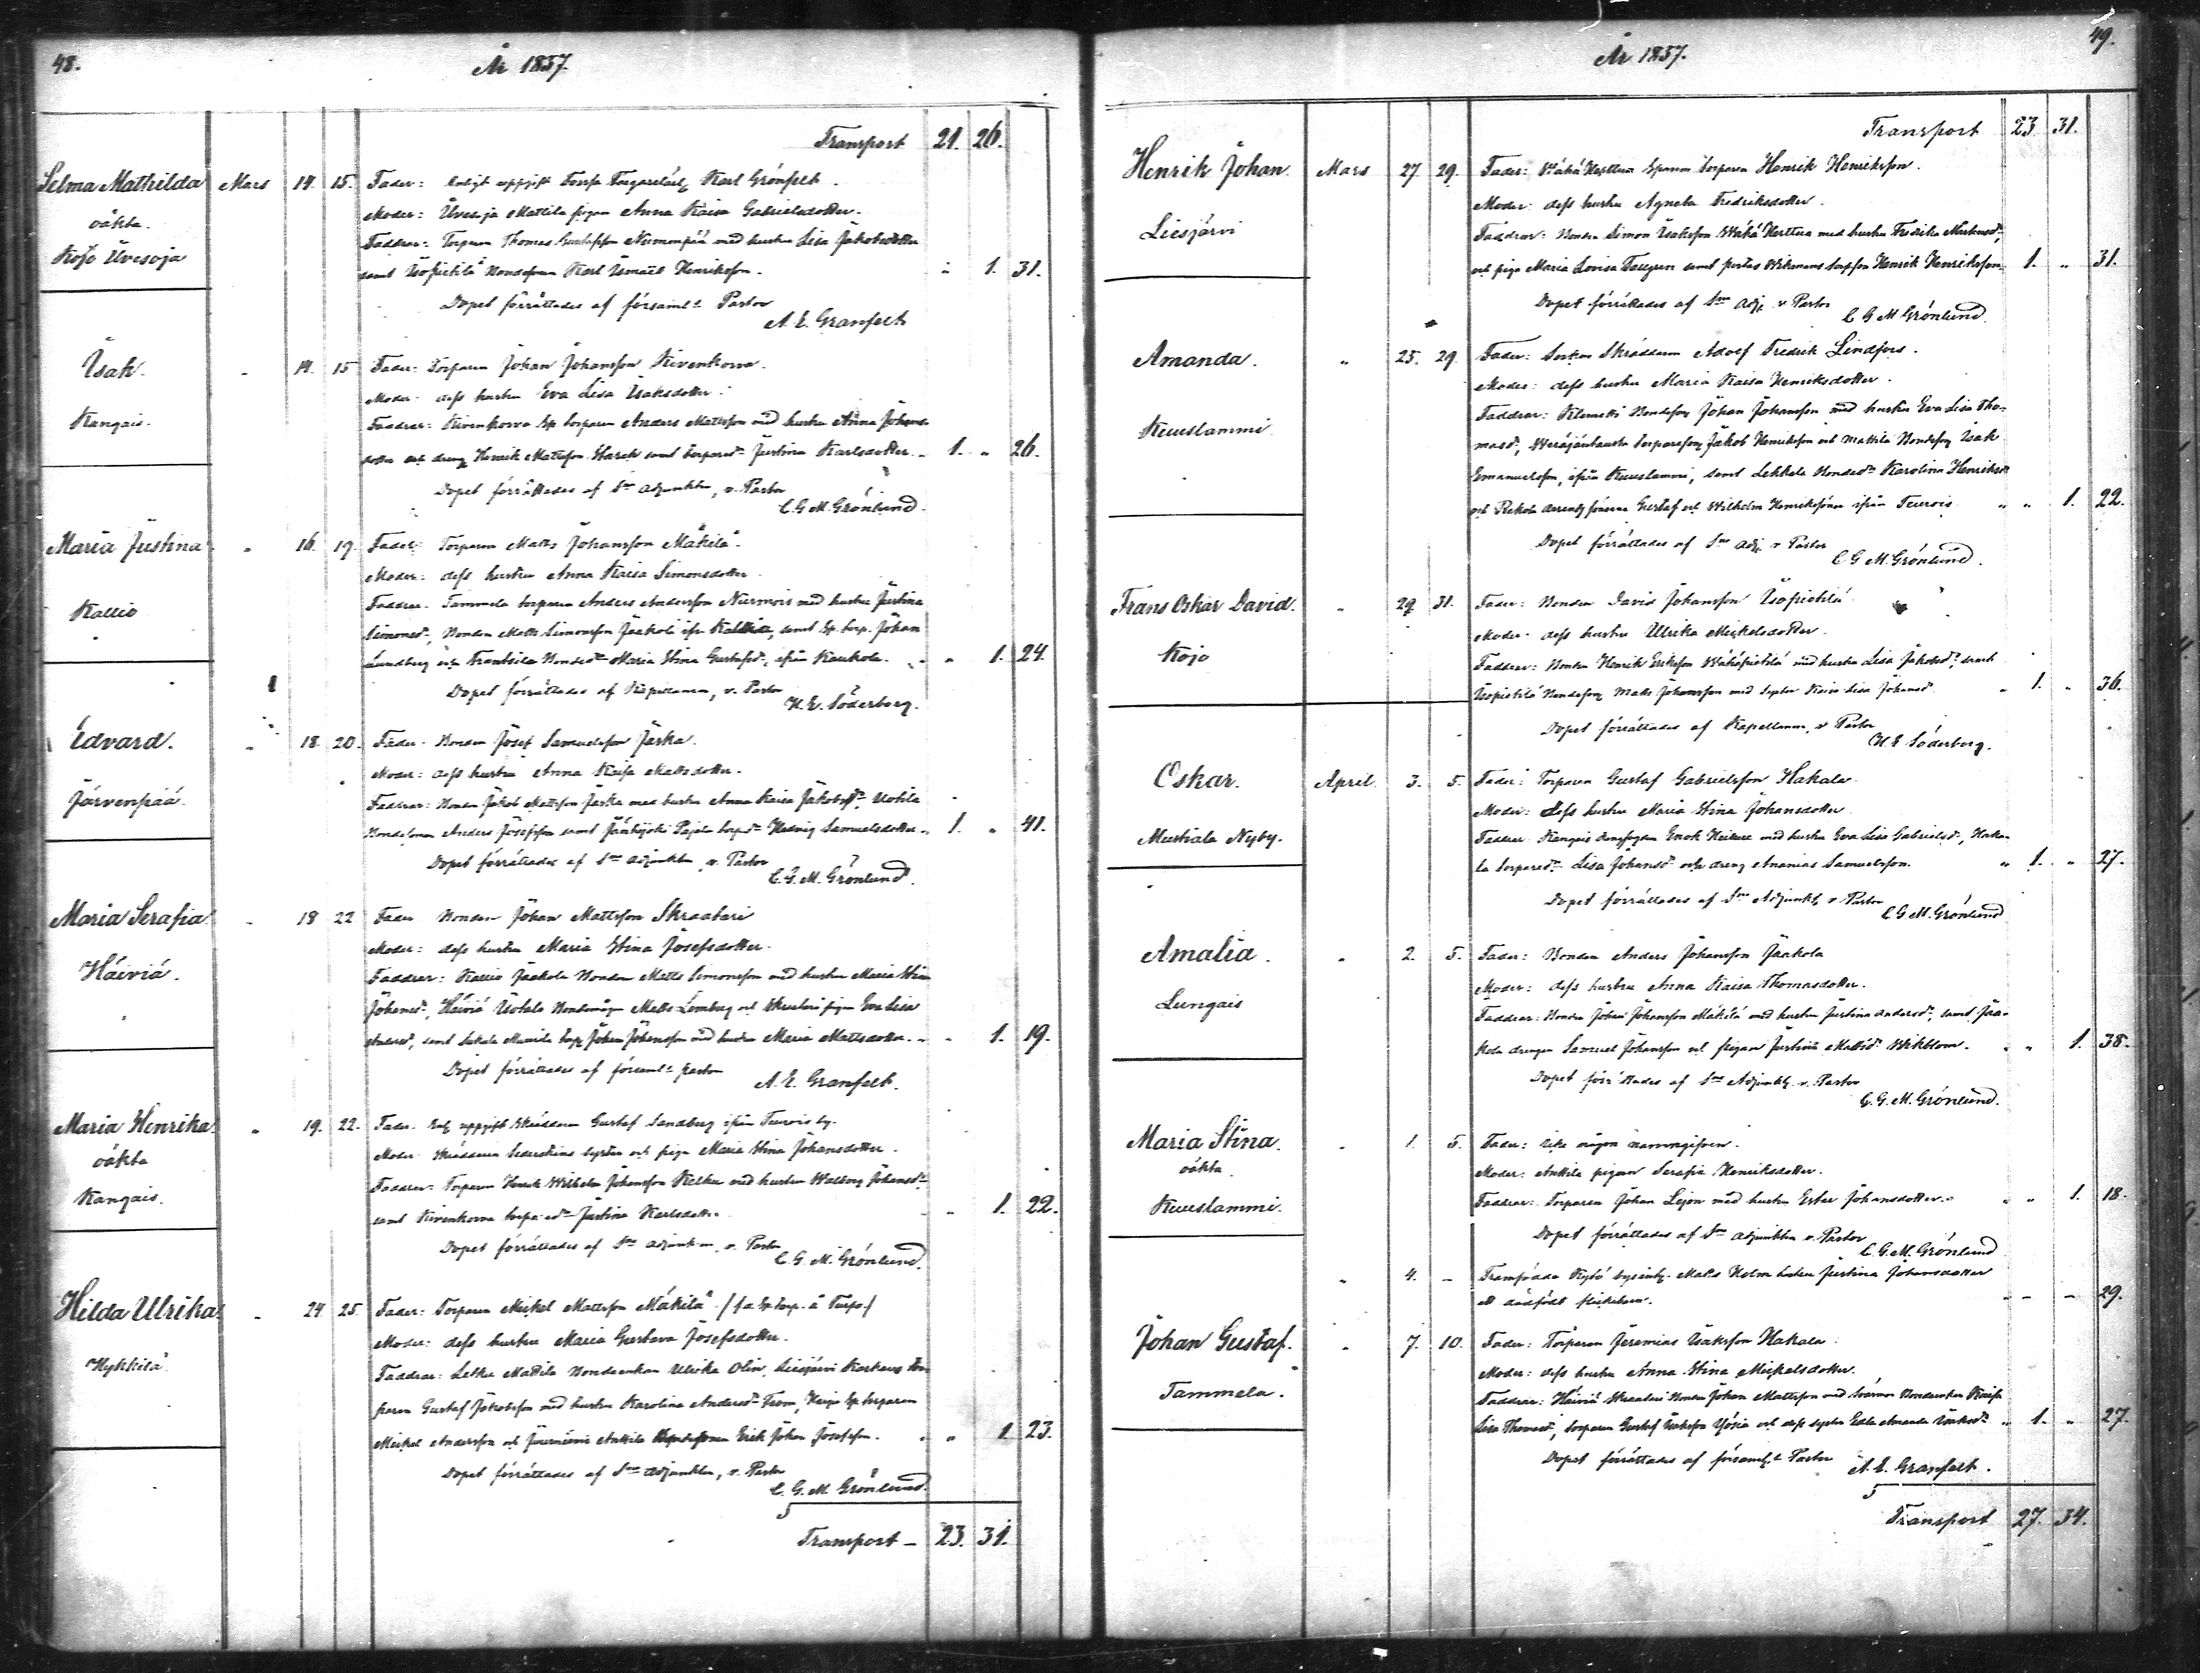 48.
År 1857.
Transport 21. 26.
Selma Mathilda Mars 14. 15. Fader: Enligt uppgift Forssa Karl Grönfelt.
oäkta. Moder: Uvesoja Mattila pigan Anna Kaisa Gabrielsdotter.
Kojo Uvesoja Faddrar: Torparen Thomas Gustafsson Nummenpää med hustru Lisa Jakobsdotter
samt Isopietilä Bondesonen Karl Ismaël Henriksson. " 1. 31.
Dopet förrättades af församl:s Pastor
A. E. Granfelt
Isak. " 14. 15 Fader: Torparen Johan Johansson Kivenkorva.
Moder: dess hustru Eva Lisa Isaksdotter.
Kangais. Faddrar: Kivenkorva torparen Anders Mattsson med hustru Anna Johans-
dotter och dreng Henrik Mattsson samt Justina Karlsdotter. 1. " 26.
Dopet förrättades af S:ne Adjunkten, v. Pastor
C. G. M. Grönlund.
Maria Justina " 16. 19. Fader: Torparen Matts Johansson Mäkilä.
Moder: dess hustru Anna Kaisa Simonsdotter
Kallio Faddrar: Tammela torparen Anders Andersson Nurmois med hustru Justina
Simonsd:r, Bonden Matts Simonsson Jaakola ifr. Kallio, samt Johan
Lundberg och Bonded:r Maria Stina Gustafsd:r, ifrån Kaukola. " 1. 24.
Dopet förrättades af Kapellanen, v. Pastor
H. E. Söderberg.
Edvard. " 18. 20. Fader: Bonden Josef Samuelsson Jaska.
Moder: dess hustru Anna Kaisa Mattsdotter.
Järvenpää. Faddrar: Bonden Jakob Mattsson Jaska med hustru Anna Kaisa Jakobsd:r, Uotila
Bondesonen Anders Josefsson samt Hedvig Samuelsdotter. 1. " 41.
Dopet förrättades af S:ne Adjunkten, v. Pastor
C. G. M. Grönlund.
Maria Serafia " 18 22 Fader Bonden Johan Mattsson Skraatari
Moder: dess hustru Maria Stina Josefsdotter.
Häiviä. Faddrar: Kallio Jaakola Bonden Matts Simonsson med hustru Maria Stina
Johansd:r, Häiviä Isotalo Matts Lemberg och pigan Eva Lisa
Andersd:r, samt Johan Johansson med hustru Maria Mattsdotter. " 1. 19.
Dopet förrättades af församl:s pastor
A. E. Granfelt.
Maria Henrika. " 19. 22. Fader. Enl. uppgift Skräddaren Gustaf Sandberg ifrån Teurois by.
oäkta Moder syster och piga Maria Stina Johansdotter.
Kangais. Faddrar: Torparen Henrik Wilhelm Johansson med hustru Walborg Johansd:r
samt Kivenkorva Justina Karlsdotter. " 1. 22.
Dopet förrättades af S:ne Adjunkten, v. Pastor
C. G. M. Grönlund.
Hilda Ulrika. " 24 25. Fader: Torparen Mickel Mattsson Mäkilä
Moder: dess hustru Maria Gustava Josefsdotter.
Hykkilä Faddrar: Mattila Bondeenkan Ulrika Olin, Liesjärvi Korkeus tor-
paren Gustaf Jakobsson med hustru Karolina Andersd:r From, torparen
Mickel Andersson och Anttila Bondesonen Erik Johan Josefsson. " 1 23.
Dopet förrättades af S:ne Adjunkten, v. Pastor
C. G. M. Grönlund.
Transport – 23. 31.
49.
År 1857.
Transport 23 31.
Henrik Johan. Mars 27 29. Fader: torparen Henrik Henriksson.
Moder: dess hustru Agneta Fredriksdotter.
Liesjärvi Faddrar: Bonden Simon Isaksson med hustru Fredrika
och piga Maria Lovisa samt Henrik Henriksson. 1. " 31.
Dopet förrättades af S:ne Adj. v Pastor
C G M Grönlund.
Amanda. " 25. 29. Fader: Socken Skräddaren Adolf Fredrik Lindfors.
Moder: dess hustru Maria Kaisa Henriksdotter.
Kuuslammi Faddrar: Klemetti Bondeson Johan Johansson med hustru Eva Lisa Tho-
masd:r, Jakob Henriksson och Mattila Bondeson Isak
Emanuelsson, ifrån Kuuslammi, samt Lekkala Bonded:r Karolina Henriksd:r
och Rekola sönerna Gustaf och Wilhelm Henrikssöner ifrån Teurois " " 1. 22.
Dopet förrättades af S:ne Adj. v Pastor
C G M. Grönlund.
Frans Oskar David. " 29 31. Fader: Bonden David Johansson Isopietilä
Moder: dess hustru Ulrika Mickelsdotter.
Kojo Faddrar: Bonden Henrik Eriksson Wähäpietilä med hustru Lisa Jakobsd:r, samt
Isopietilä Bondeson Matts Johansson med syster Kaisa Lisa Johansd:r. " 1. " 36.
Dopet förrättades af Kapellanen, v Pastor
H. E Söderberg.
Oskar. April 3. 5. Fader: Torparen Gustaf Gabrielsson Hakala
Moder: dess hustru Maria Stina Johansdotter
Mustiala Nyby. Faddrar: Kangais Enok med hustru Eva Lisa Gabrielsd:r, Haka-
la torpared:r Lisa Johansd:r och dreng Ananias Samuelsson. " 1. " 27.
Dopet förrättades af S:ne Adjunkt, v Pastor
C G M. Grönlund
Amalia. " 2. 5. Fader: Bonden Anders Johansson Jaakola
Moder: dess hustru Anna Kaisa Thomasdotter.
Lungais Faddrar: Bonden Johan Johansson Mäkilä med hustru Justina Andersd:r, samt Jaa-
kola drengen Samuel Johansson och pigan Justina Mattsd:r Wikblom. " " 1. 38.
Dopet förrättades af S:ne Adjunkt, v. Pastor
C. G. M. Grönlund.
Maria Stina. " 1. 5. Fader: Icke någon namngifven.
oäkta Moder: Anttila pigan Serafia Henriksdotter.
Kuuslammi. Faddrar: Torparen Johan Lejon med hustru Ester Johansdotter. " " 1. 18.
Dopet förrättades af S:ne Adjunkten v. Pastor
C. G. M. Grönlund
" 4. – Framfödde Matts Holm hustru Justina Johansdotter
ett dödfödt flickebarn. – – – 29.
Johan Gustaf. " 7. 10. Fader: Torparen Jeremias Isaksson Hakala
Moder: dess hustru Anna Stina Mickelsdotter.
Tammela. Faddrar: Häiviä Skraatari Bonden Johan Mattsson med Bondeenkan Kaisa
Lisa Thomasd:r, torparen Gustaf Isaksson och dess syster Edla Amanda Isaksd:r " 1. " 27.
Dopet förrättades af församl:s Pastor
A. E. Granfelt.
Transport 27. 34.